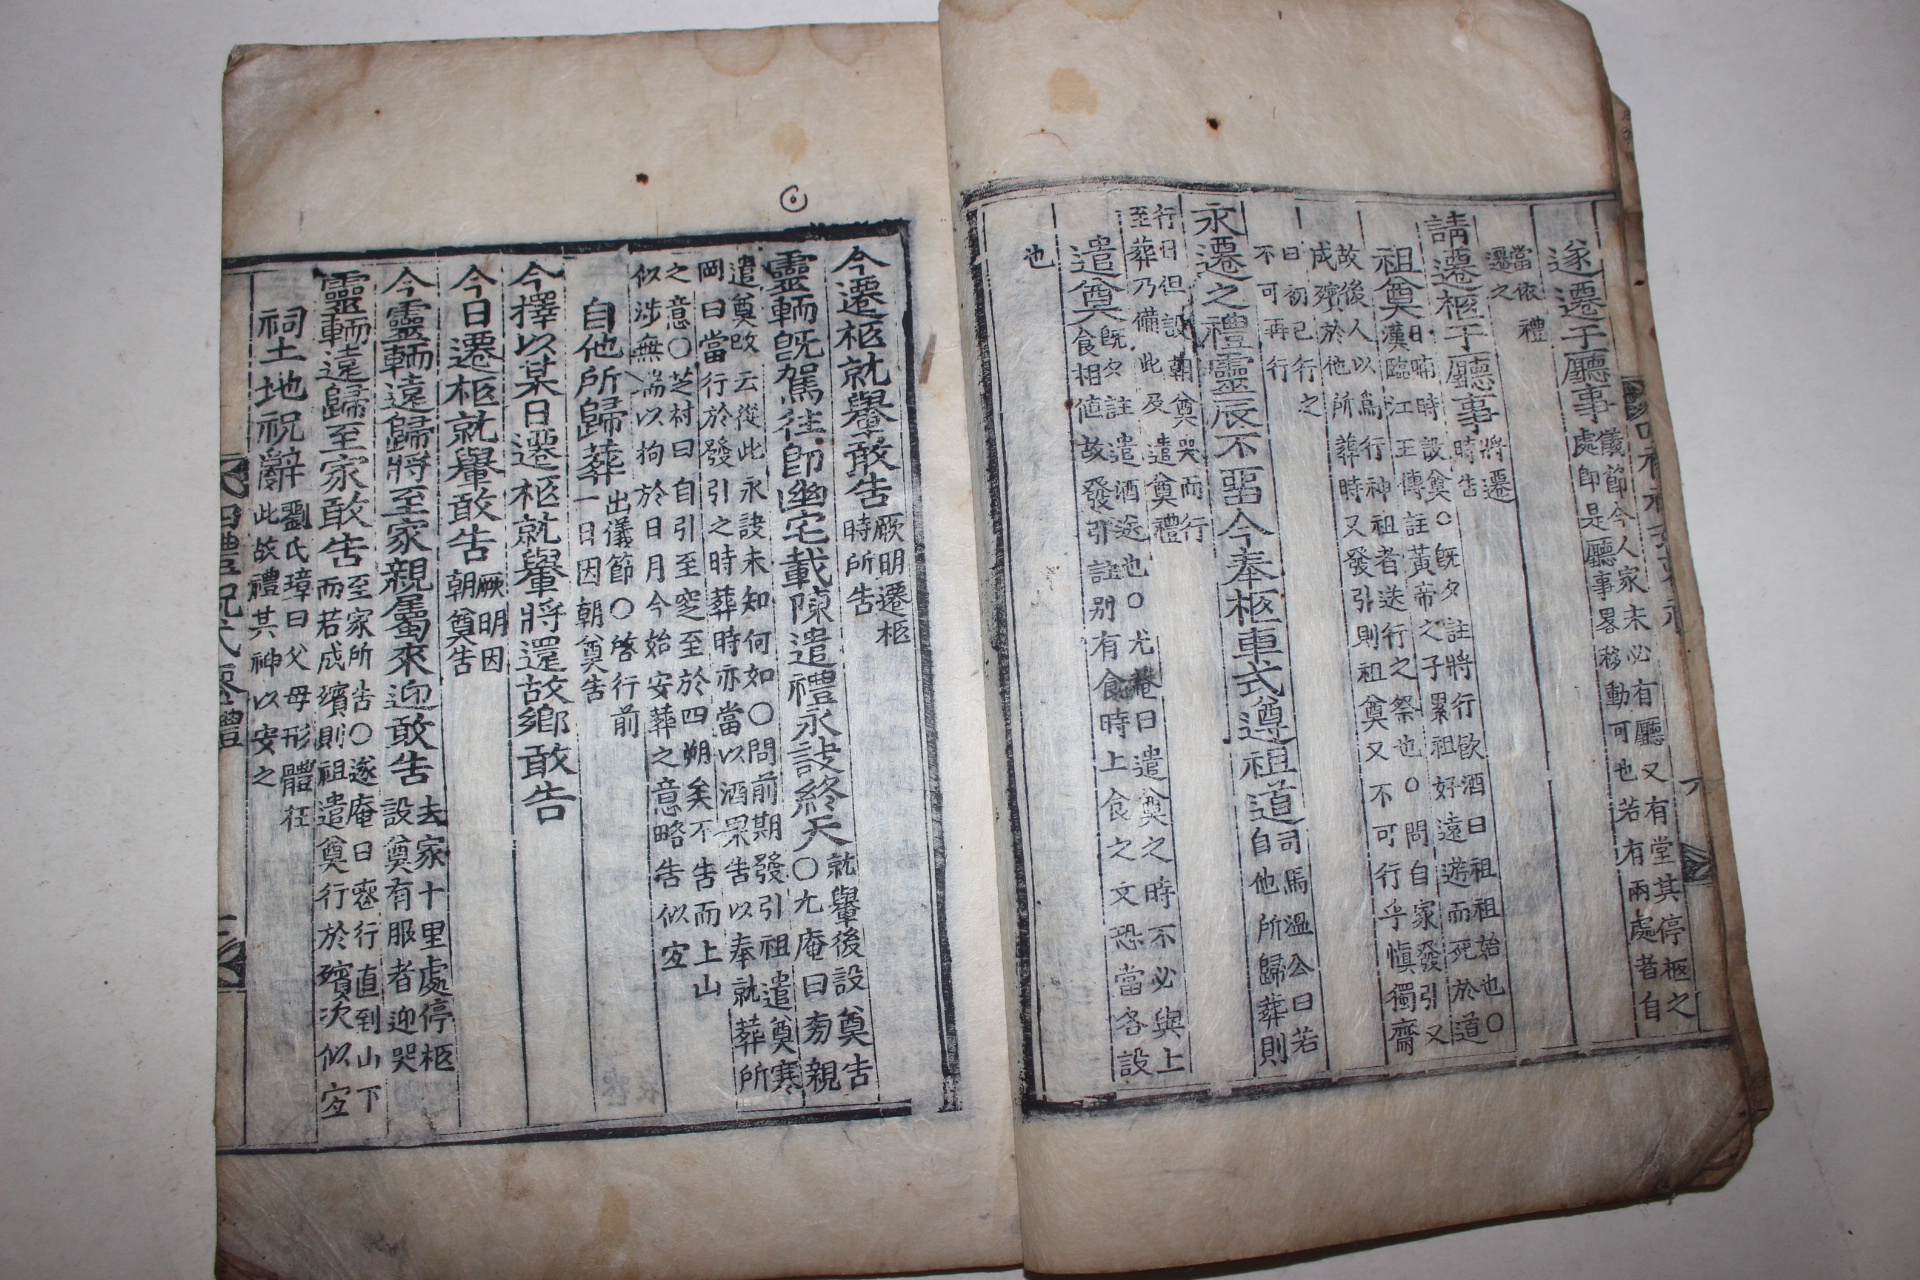 遂遷于廳事儀節今人家未必有廳又有堂其停柩之
處卽是廳事畧移動可也若有兩處者自
當依禮
遷之
請遷柩于廳事將遷
時告
祖奠日晡時設奠○旣夕註將行飮酒曰祖祖始也○
漢臨江王傳註黃帝之子累祖好遠遊而死於道
故後人以爲行神祖者送行之祭也○問自家發引又
成殯於他所葬時又發引則祖奠又不可行乎愼獨齋
曰初已行之
不可再行
永遷之禮靈辰不留今奉柩車式遵祖道司馬溫公曰若
自他所歸葬則
行日但設朝奠哭而行
至葬乃備此及遣奠禮
遣奠旣夕註遣酒送也○尤菴曰遣奠之時不必與上
食相値故發引註別有食時上食之文恐當各設
也
今遷柩就轝敢告厥明遷柩
時所告
靈輀旣駕往卽幽宅載陳遣禮永訣終天就轝後設奠告
○尤庵曰旁親
遣奠改云從此永訣未知何如○問前期發引祖遣奠寒
岡曰當行於發引之時葬時亦當以酒果告以奉就葬所
之意○芝村曰自引至窆至於四朔矣不告而上山
似涉無端以拘於日月今始安葬之意略告似宜
自他所歸葬出儀節○啓行前
一日因朝奠告
今擇以某日遷柩就轝將還故鄕敢告
今日遷柩就轝敢告厥明因
朝奠告
今靈輀遠歸將至家親屬來迎敢告去家十里處停柩
設奠有服者迎哭
靈輀遠歸至家敢告至家所告○遂庵曰窆行直到山下
而若成殯則祖遣奠行於殯次似宜
祠土地祝辭劉氏璋曰父母形體在
此故禮其神以安之
四禮祝式 喪禮